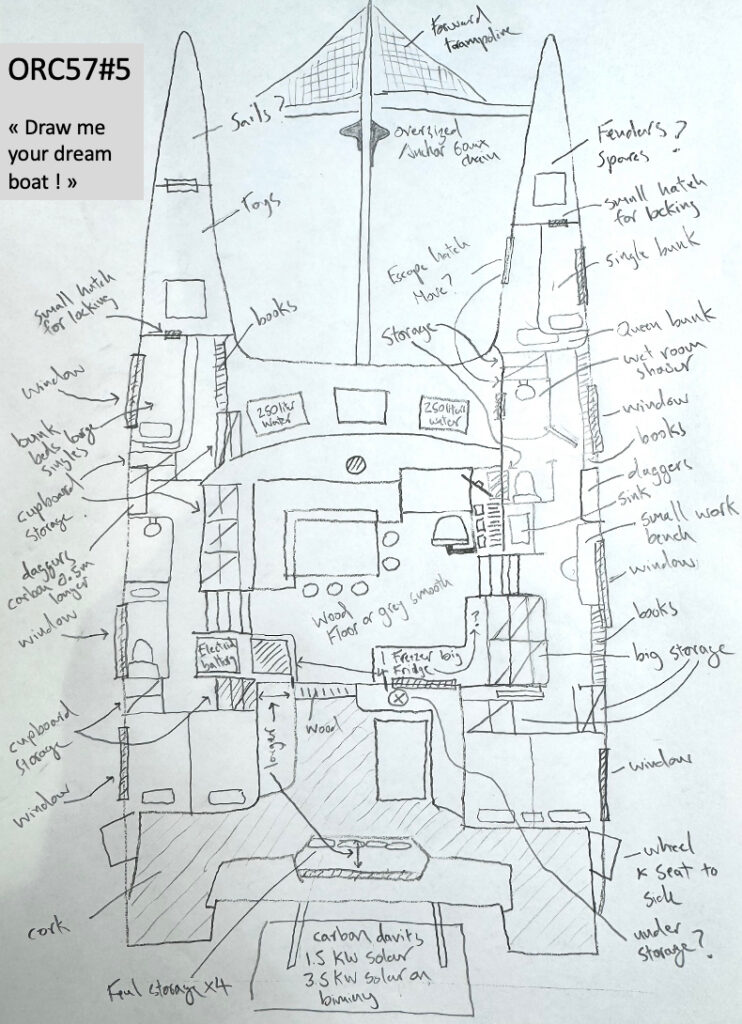 ORC57#5
« Draw me
your dream
boat ! »
forward
trampoline
Sails ?
oversized
Anchor &
chain
Fenders ?
Spares
small hatch
for locking
Togs
single bunk
Escape hatch
Move ?
small hatch
for locking
books
Storage
Queen bunk
wet room
shower
window
250 liter
water
250 liter
water
window
bunk
beds large
singles
books
daggers
sink
cupboard
storage
small work
bench
daggers
carbon 0.5m
longer
window
wood
floor or grey smooth
?
window
books
Electrical
battery
1 Freezer big
Fridge
big storage
longer
wood
cupboard
storage
window
window
wheel
& seat to
side
cork
under
storage?
Feul storage x4
carbon davits
1.5 KW solar
3.5 KW solar on
bimminy